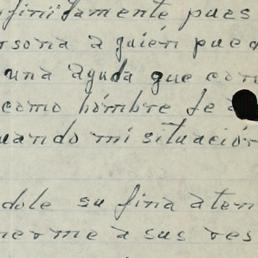 finidamente pues
rsona a quién pued
una ayuda que con
como hómbre de a
uando mi situación
dole su fina aten
nerme a sus res